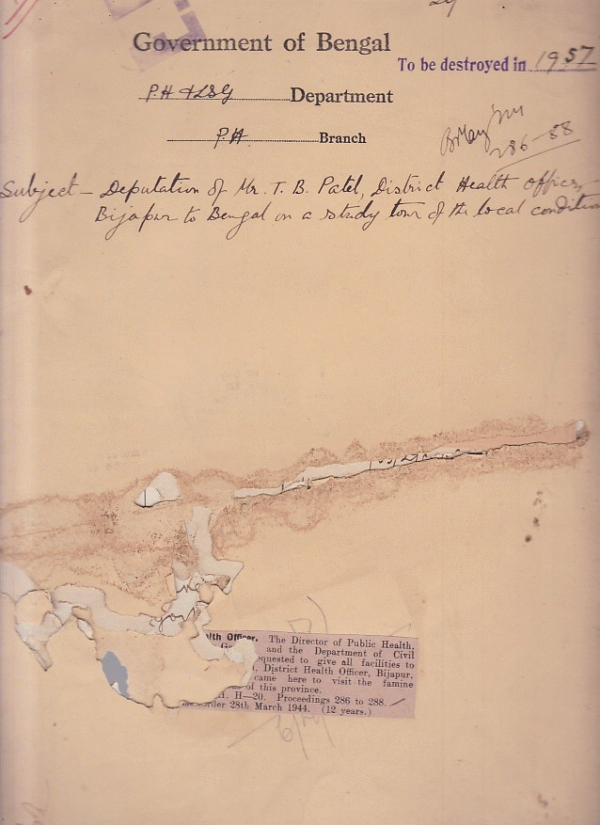 Government of Bengal
To be destroyed in 1957
P.H & LSG Department
P.H. Branch
286-88
Subject - Deputation of Mr. T. B. Patel, District Health officer,
Bijapur to Bengal on a study tour of the local condition
lth Officer. The Director of Public Health,
and the Department of Civil
quested to give all facilities to
District Health Officer, Bijapur,
came here to visit the famine
of this province.
H—20. Proceedings 286 to 288.
order 28th March 1944. (12 years.)